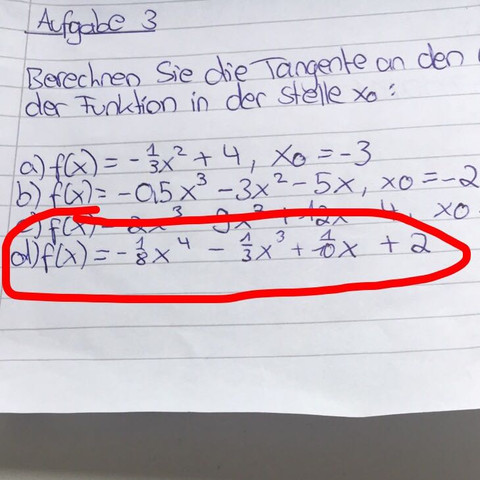 Aufgabe 3
Berechnen Sie die Tangente an den
der Funktion in der Stelle x₀:
a) f(x) = -⅓x² + 4, x₀ = -3
b) f(x) = -0,5x³ - 3x² - 5x, x₀ = -2
f(x) 2x³ 9x² + 12x 4, x₀
d) f(x) = -⅛x⁴ - ⅓x³ + ⅒x + 2